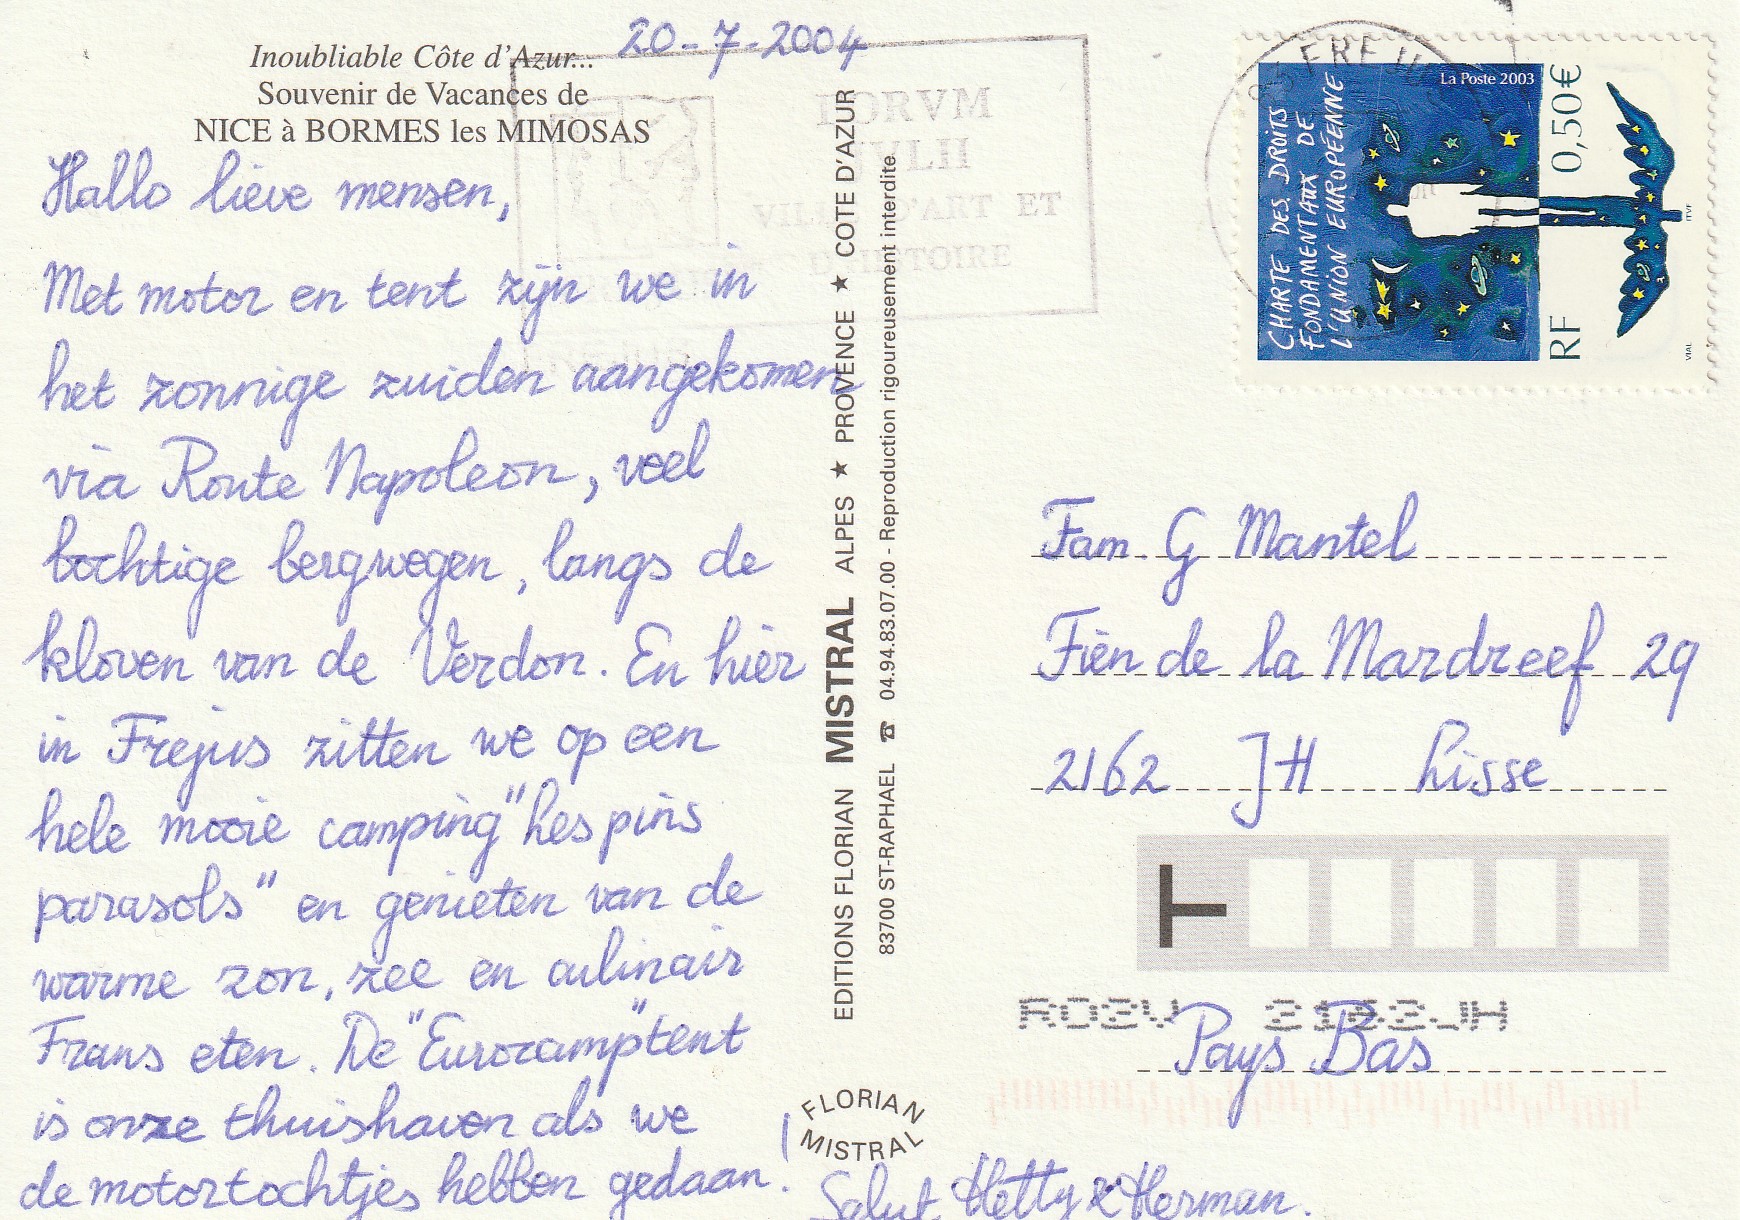 20-7-2004
Inoubliable Côte d'Azur...
Souvenir de Vacances de
NICE à BORMES les MIMOSAS
Hallo lieve mensen,
Met motor en tent zijn we in
het zonnige zuiden aangekomen
via Route Napoleon, veel
bochtige bergwegen, langs de
kloven van de Verdon. En hier
in Frejus zitten we op een
hele mooie camping "Les pins
parasols" en genieten van de
warme zon, zee en culinair
Frans eten. De "Eurocamp"tent
is onze thuishaven als we
de motortochtjes hebben gedaan!
Salut Hetty & Herman.
EDITIONS FLORIAN MISTRAL ALPES ★ PROVENCE ★ COTE D'AZUR
83700 ST-RAPHAEL ☎ 04.94.83.07.00 - Reproduction rigoureusement interdite
FLORIAN
MISTRAL
FORVM
IVLII
VILLE D'ART ET
D'HISTOIRE
83 FREJUS
La Poste 2003
CHARTE DES DROITS
FONDAMENTAUX DE
L'UNION EUROPÉENNE
RF 0,50€
ITVF
VIAL
Fam. G Mantel
Fien de la Mardreef 29
2162 JH Lisse
T
ROZV 2162JH
Pays Bas